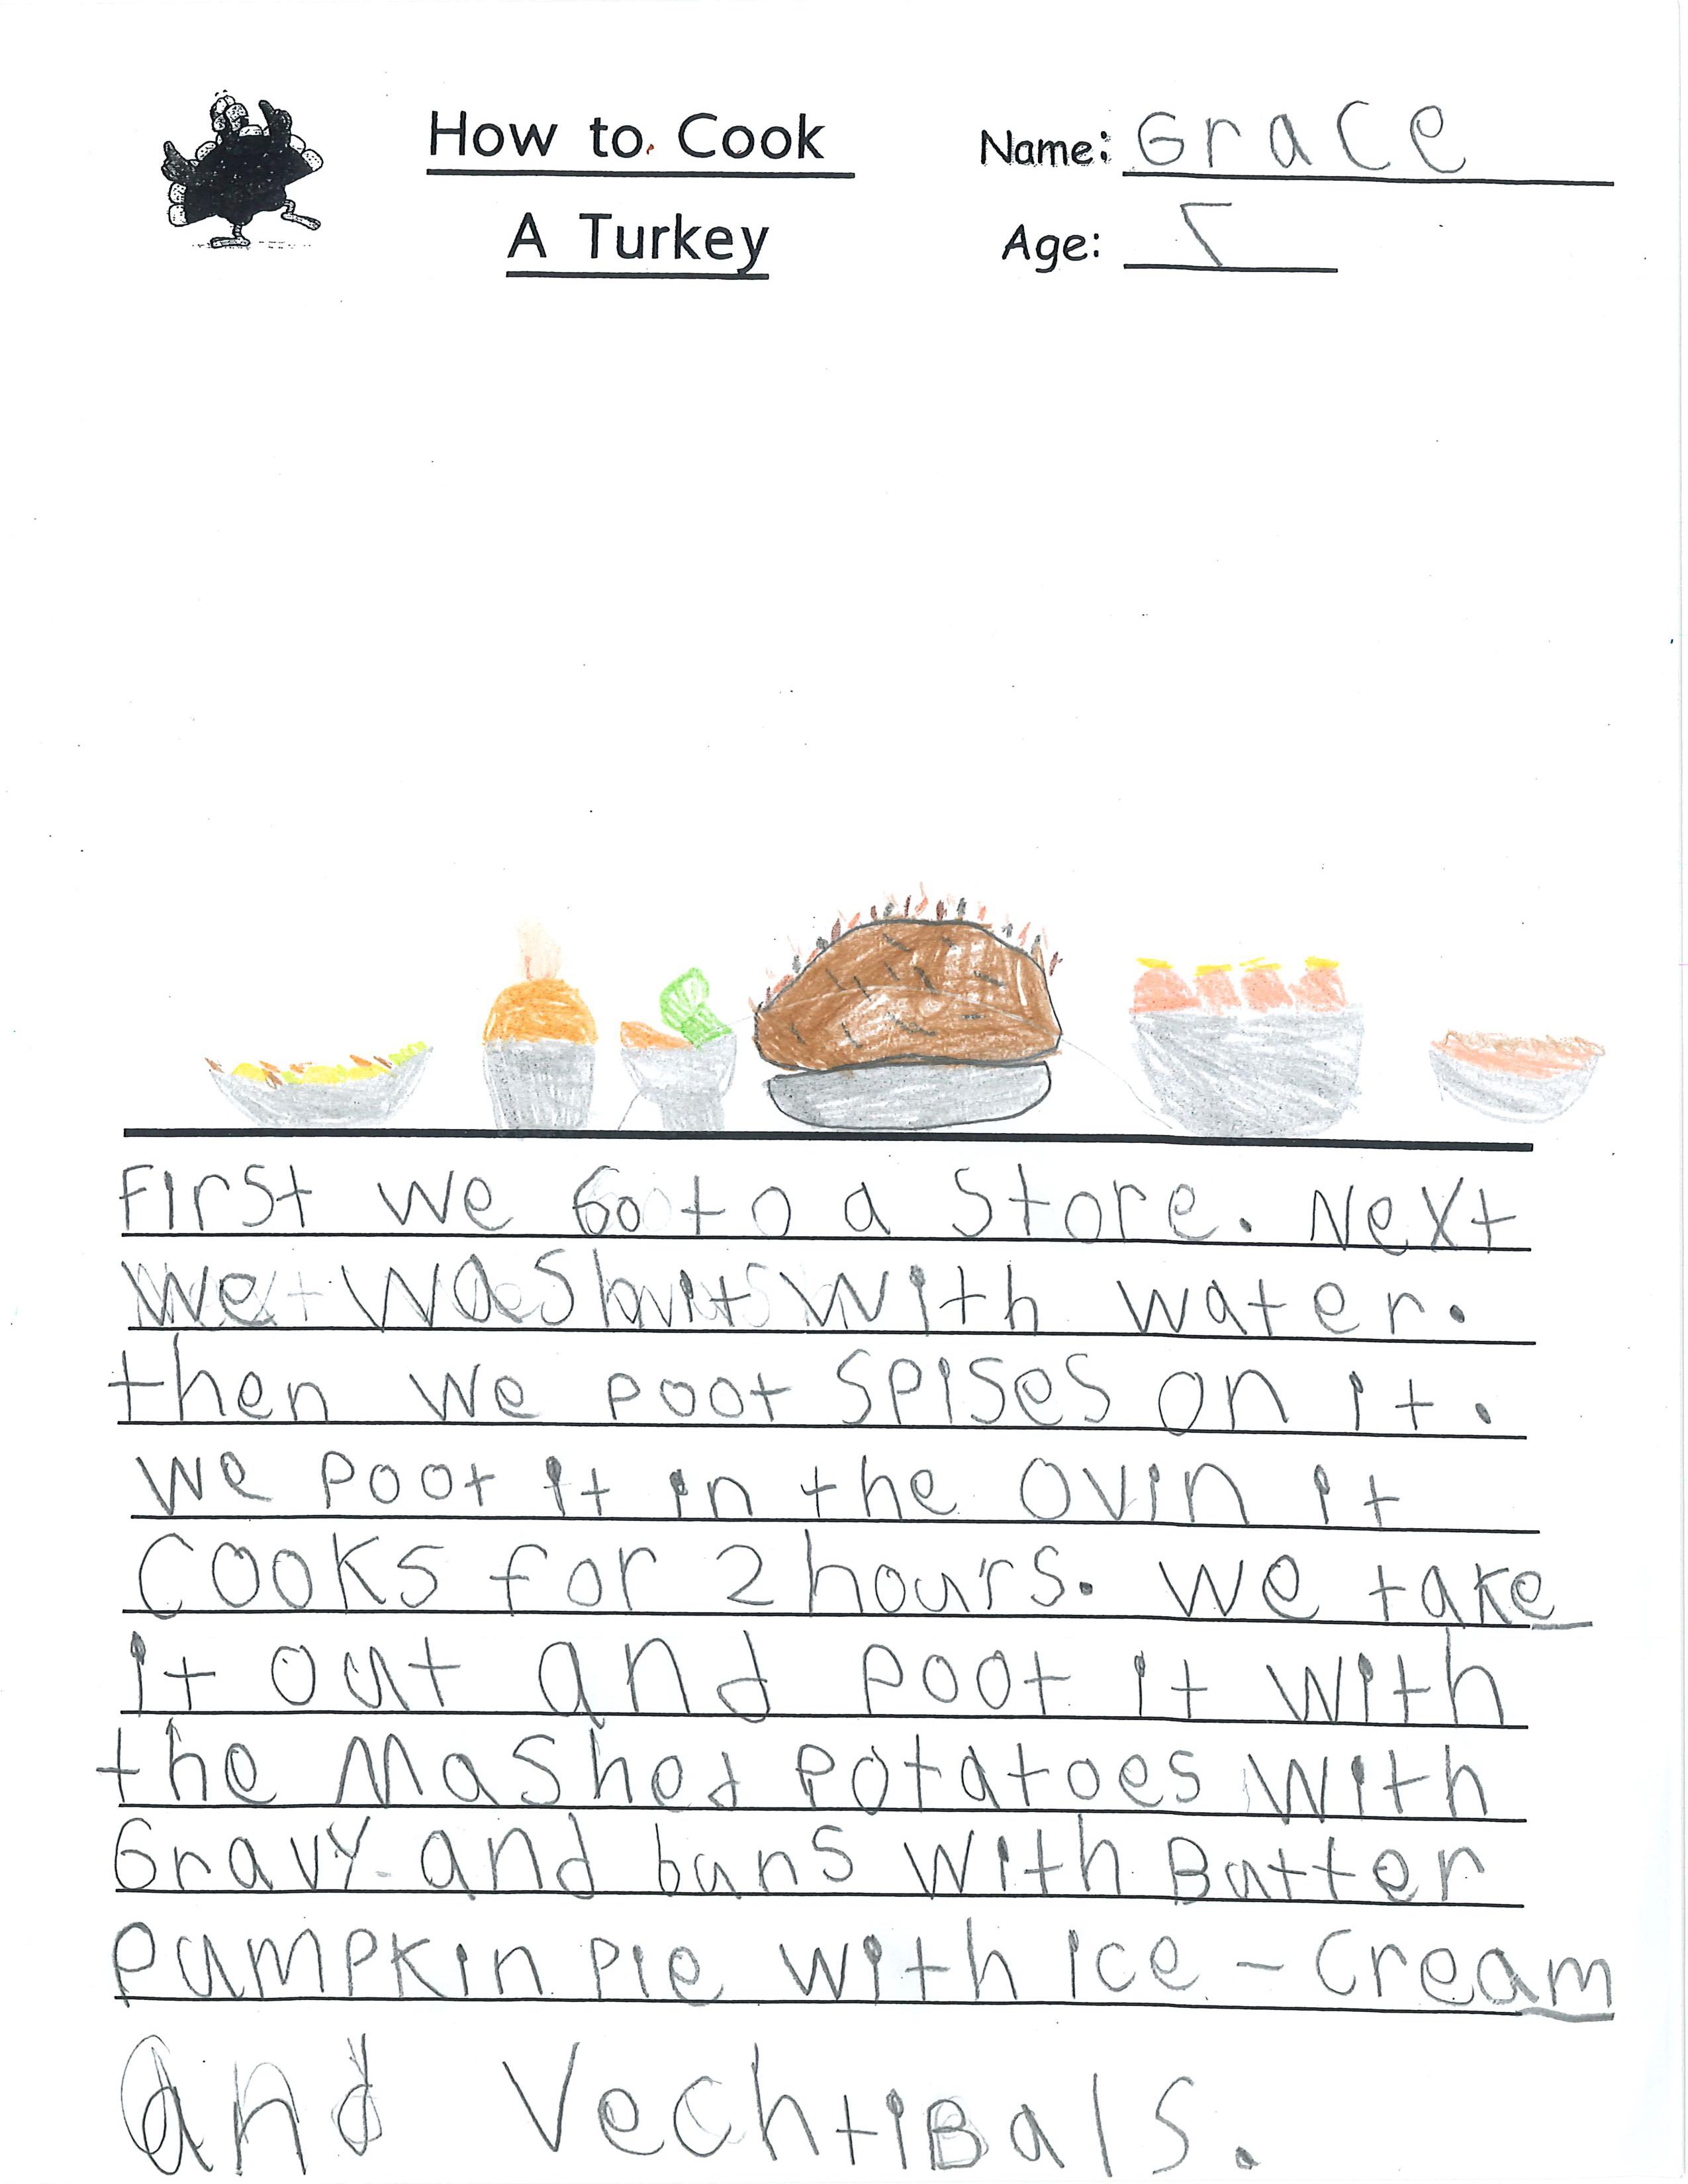 How to Cook
A Turkey
Name: Grace
Age: 5
First we Go to a Store. Next
we wash it with water.
then we poot spises on it.
we poot it in the ovin it
cooks for 2 hours. we take
it out and poot it with
the mashed potatoes with
Gravy and buns with Butter
pumpkin pie with ice-cream
and VechtiBals.